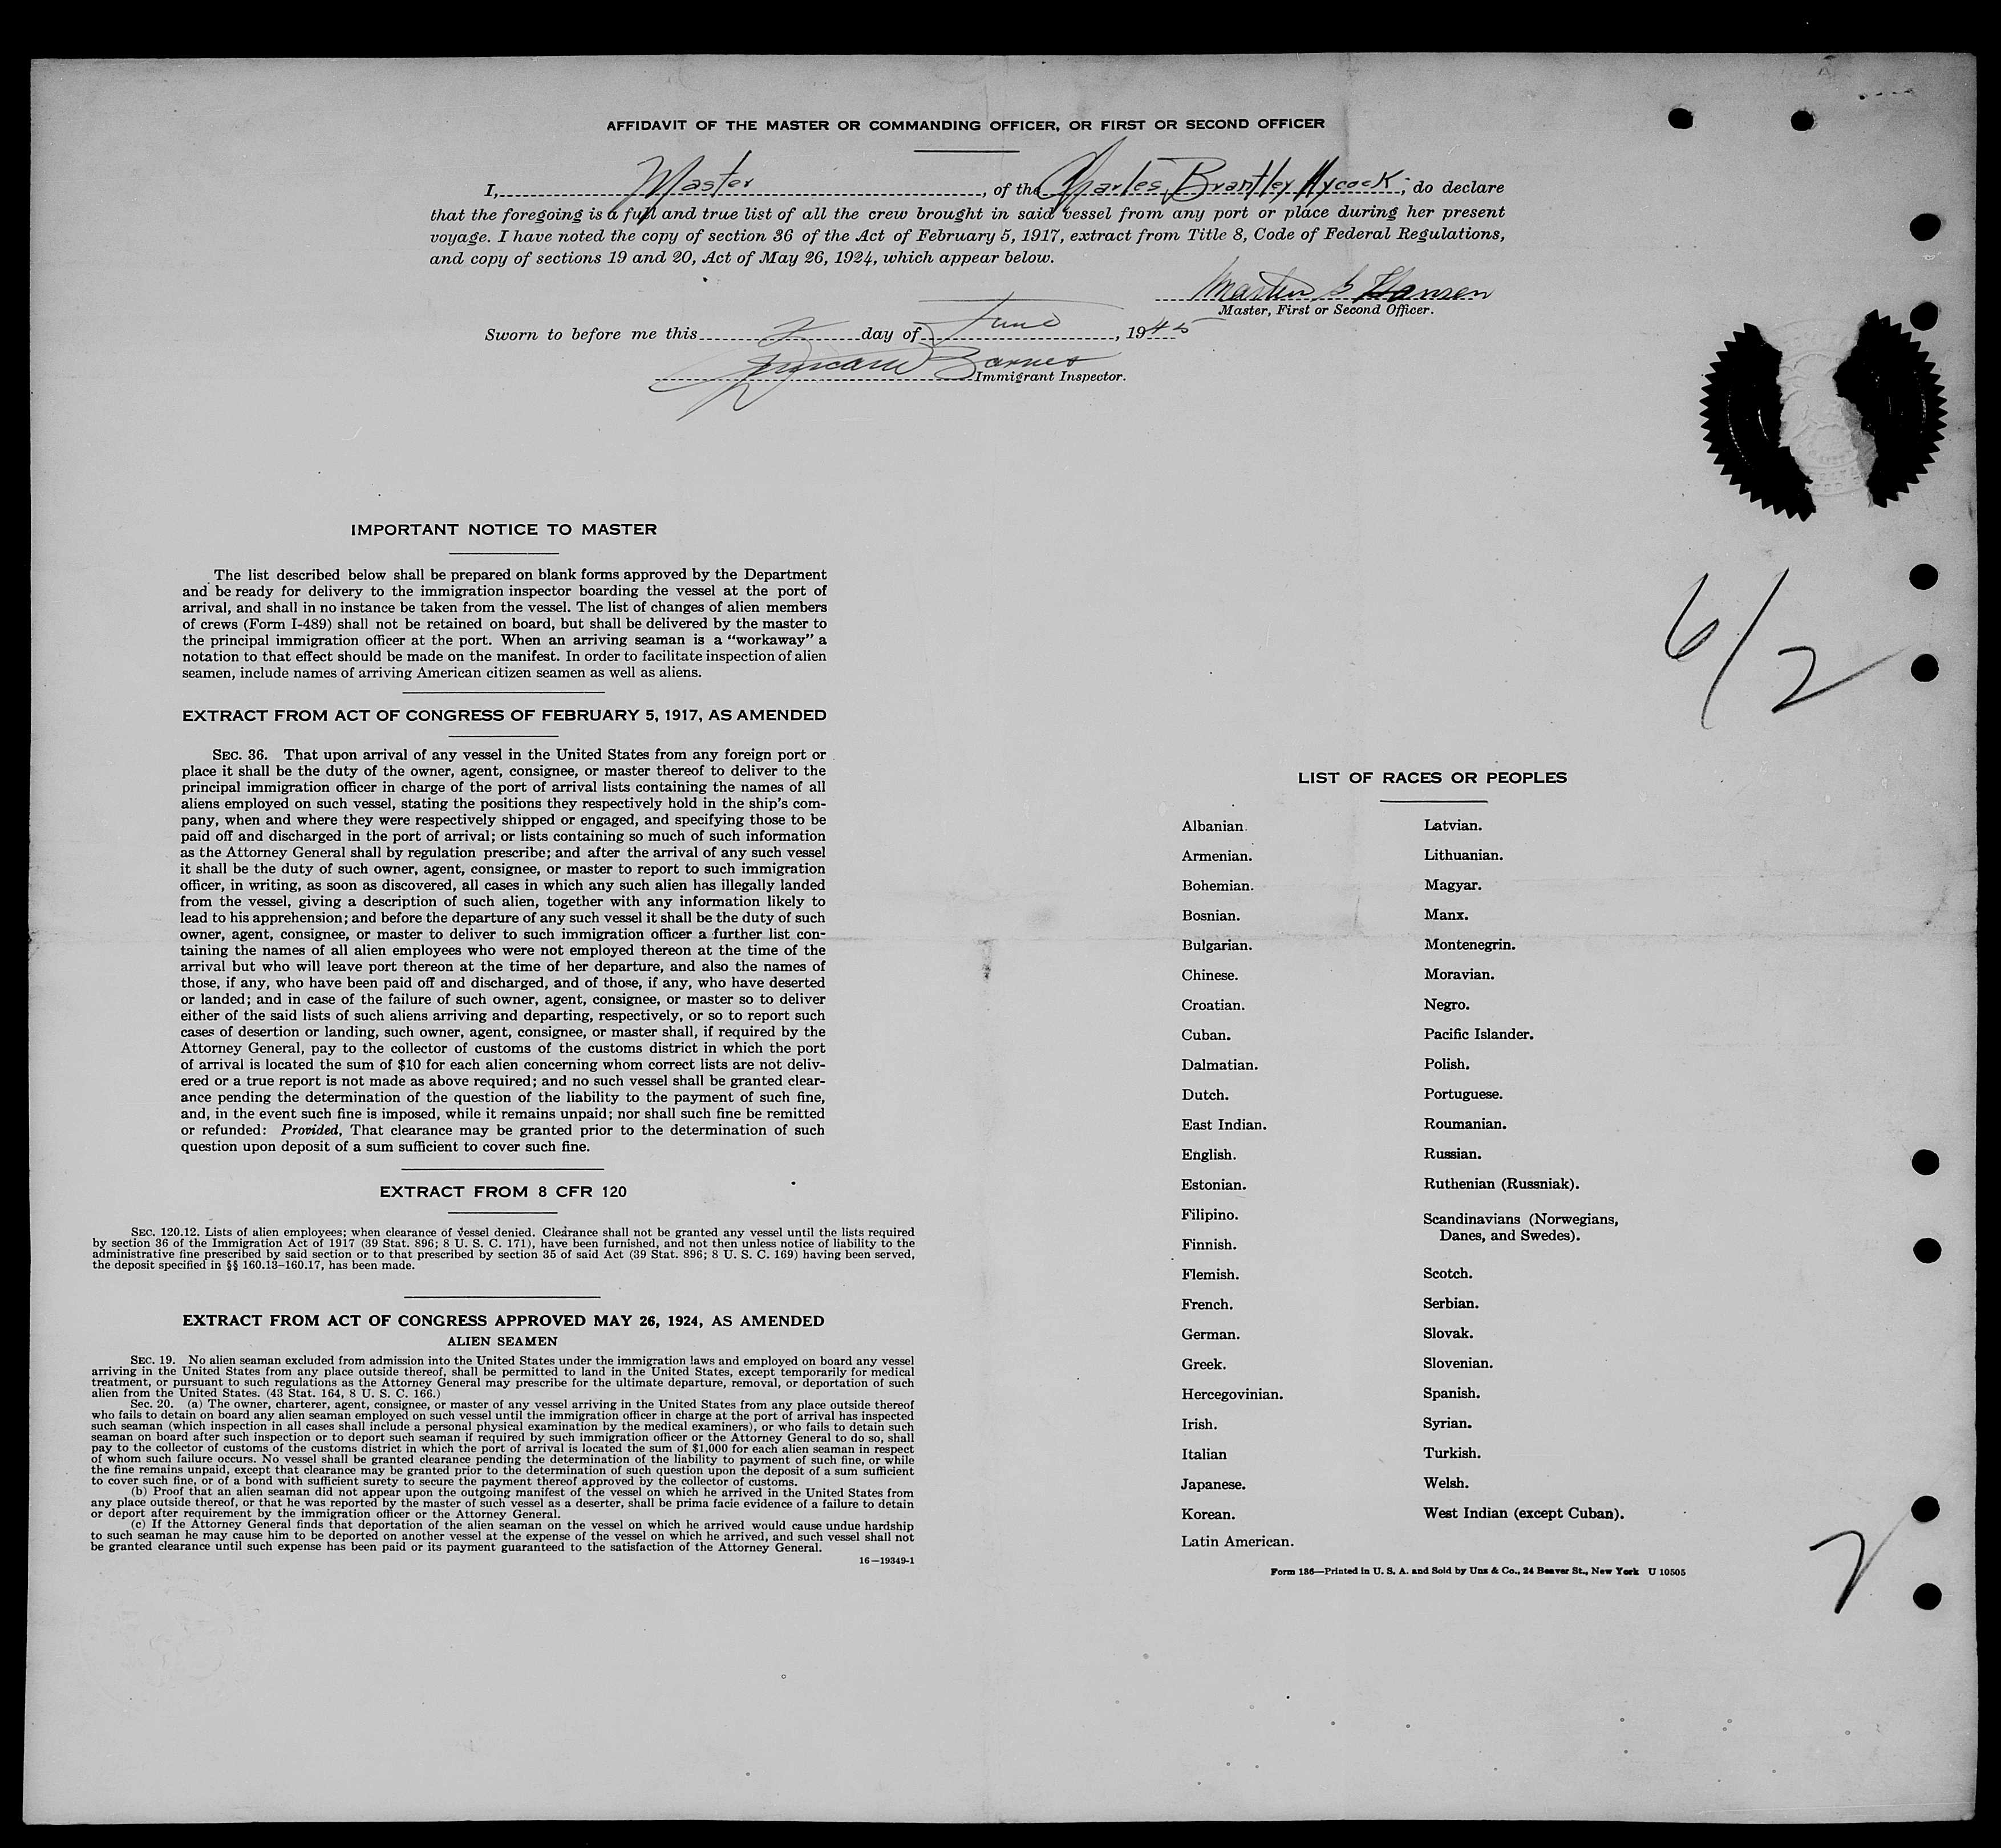 AFFIDAVIT OF THE MASTER OR COMMANDING OFFICER, OR FIRST OR SECOND OFFICER
I, Master, of the Charles Brantley Aycock, do declare
that the foregoing is a full and true list of all the crew brought in said vessel from any port or place during her present
voyage. I have noted the copy of section 36 of the Act of February 5, 1917, extract from Title 8, Code of Federal Regulations,
and copy of sections 19 and 20, Act of May 26, 1924, which appear below.
Hansen
Master, First or Second Officer.
Sworn to before me this 2 day of June, 1945
Barnes
Immigrant Inspector.
IMPORTANT NOTICE TO MASTER
The list described below shall be prepared on blank forms approved by the Department
and be ready for delivery to the immigration inspector boarding the vessel at the port of
arrival, and shall in no instance be taken from the vessel. The list of changes of alien members
of crews (Form I-489) shall not be retained on board, but shall be delivered by the master to
the principal immigration officer at the port. When an arriving seaman is a "workaway" a
notation to that effect should be made on the manifest. In order to facilitate inspection of alien
seamen, include names of arriving American citizen seamen as well as aliens.
EXTRACT FROM ACT OF CONGRESS OF FEBRUARY 5, 1917, AS AMENDED
SEC. 36. That upon arrival of any vessel in the United States from any foreign port or
place it shall be the duty of the owner, agent, consignee, or master thereof to deliver to the
principal immigration officer in charge of the port of arrival lists containing the names of all
aliens employed on such vessel, stating the positions they respectively hold in the ship's com-
pany, when and where they were respectively shipped or engaged, and specifying those to be
paid off and discharged in the port of arrival; or lists containing so much of such information
as the Attorney General shall by regulation prescribe; and after the arrival of any such vessel
it shall be the duty of such owner, agent, consignee, or master to report to such immigration
officer, in writing, as soon as discovered, all cases in which any such alien has illegally landed
from the vessel, giving a description of such alien, together with any information likely to
lead to his apprehension; and before the departure of any such vessel it shall be the duty of such
owner, agent, consignee, or master to deliver to such immigration officer a further list con-
taining the names of all alien employees who were not employed thereon at the time of the
arrival but who will leave port thereon at the time of her departure, and also the names of
those, if any, who have been paid off and discharged, and of those, if any, who have deserted
or landed; and in case of the failure of such owner, agent, consignee, or master so to deliver
either of the said lists of such aliens arriving and departing, respectively, or so to report such
cases of desertion or landing, such owner, agent, consignee, or master shall, if required by the
Attorney General, pay to the collector of customs of the customs district in which the port
of arrival is located the sum of $10 for each alien concerning whom correct lists are not deliv-
ered or a true report is not made as above required; and no such vessel shall be granted clear-
ance pending the determination of the question of the liability to the payment of such fine,
and, in the event such fine is imposed, while it remains unpaid; nor shall such fine be remitted
or refunded: Provided, That clearance may be granted prior to the determination of such
question upon deposit of a sum sufficient to cover such fine.
EXTRACT FROM 8 CFR 120
SEC. 120.12. Lists of alien employees; when clearance of vessel denied. Clearance shall not be granted any vessel until the lists required
by section 36 of the Immigration Act of 1917 (39 Stat. 896; 8 U. S. C. 171), have been furnished, and not then unless notice of liability to the
administrative fine prescribed by said section or to that prescribed by section 35 of said Act (39 Stat. 896; 8 U. S. C. 169) having been served,
the deposit specified in §§ 160.13-160.17, has been made.
EXTRACT FROM ACT OF CONGRESS APPROVED MAY 26, 1924, AS AMENDED
ALIEN SEAMEN
SEC. 19. No alien seaman excluded from admission into the United States under the immigration laws and employed on board any vessel
arriving in the United States from any place outside thereof, shall be permitted to land in the United States, except temporarily for medical
treatment, or pursuant to such regulations as the Attorney General may prescribe for the ultimate departure, removal, or deportation of such
alien from the United States. (43 Stat. 164, 8 U. S. C. 166.)
Sec. 20. (a) The owner, charterer, agent, consignee, or master of any vessel arriving in the United States from any place outside thereof
who fails to detain on board any alien seaman employed on such vessel until the immigration officer in charge at the port of arrival has inspected
such seaman (which inspection in all cases shall include a personal physical examination by the medical examiners), or who fails to detain such
seaman on board after such inspection or to deport such seaman if required by such immigration officer or the Attorney General to do so, shall
pay to the collector of customs of the customs district in which the port of arrival is located the sum of $1,000 for each alien seaman in respect
of whom such failure occurs. No vessel shall be granted clearance pending the determination of the liability to payment of such fine, or while
the fine remains unpaid, except that clearance may be granted prior to the determination of such question upon the deposit of a sum sufficient
to cover such fine, or of a bond with sufficient surety to secure the payment thereof approved by the collector of customs.
(b) Proof that an alien seaman did not appear upon the outgoing manifest of the vessel on which he arrived in the United States from
any place outside thereof, or that he was reported by the master of such vessel as a deserter, shall be prima facie evidence of a failure to detain
or deport after requirement by the immigration officer or the Attorney General.
(c) If the Attorney General finds that deportation of the alien seaman on the vessel on which he arrived would cause undue hardship
to such seaman he may cause him to be deported on another vessel at the expense of the vessel on which he arrived, and such vessel shall not
be granted clearance until such expense has been paid or its payment guaranteed to the satisfaction of the Attorney General.
16—19349-1
6/2
LIST OF RACES OR PEOPLES
Albanian.
Armenian.
Bohemian.
Bosnian.
Bulgarian.
Chinese.
Croatian.
Cuban.
Dalmatian.
Dutch.
East Indian.
English.
Estonian.
Filipino.
Finnish.
Flemish.
French.
German.
Greek.
Hercegovinian.
Irish.
Italian
Japanese.
Korean.
Latin American.
Latvian.
Lithuanian.
Magyar.
Manx.
Montenegrin.
Moravian.
Negro.
Pacific Islander.
Polish.
Portuguese.
Roumanian.
Russian.
Ruthenian (Russniak).
Scandinavians (Norwegians,
Danes, and Swedes).
Scotch.
Serbian.
Slovak.
Slovenian.
Spanish.
Syrian.
Turkish.
Welsh.
West Indian (except Cuban).
Form 186—Printed in U. S. A. and Sold by Unz & Co., 24 Beaver St., New York U 10505
7